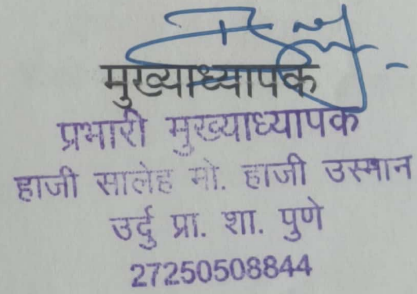 मुख्याध्यापक
प्रभारी मुख्याध्यापक
हाजी सालेह मो. हाजी उस्मान
उर्दु प्रा. शा. पुणे
27250508844